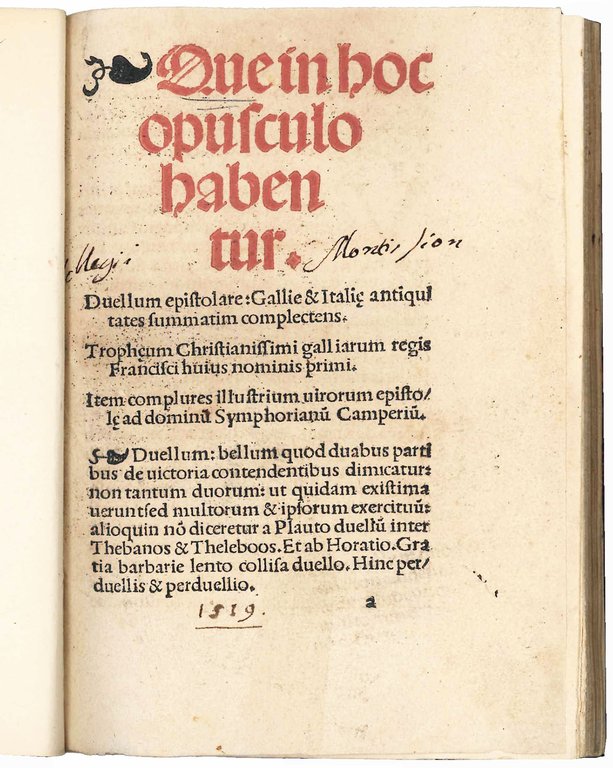 Que in hoc
opuſculo
haben
tur.
Collegij Montis Sion
Duellum epiſtolare: Gallie & Italię antiqui
tates ſummatim complectens.
Trophęum Chriſtianiſſimi galliarum regis
Franciſci huius nominis primi.
Item complures illuſtrium uirorum epiſto/
lę ad dominū Symphorianū Camperiū.
Duellum: bellum quod duabus parti
bus de uictoria contendentibus dimicatur:
non tantum duorum: ut quidam exiſtima
uerunt ſed multorum & ipſorum exercituū:
alioquin nō diceretur a Plauto duellū inter
Thebanos & Theleboos. Et ab Horatio. Gra
tia barbarie lento colliſa duello. Hinc per/
duellis & perduellio.
1519.
a